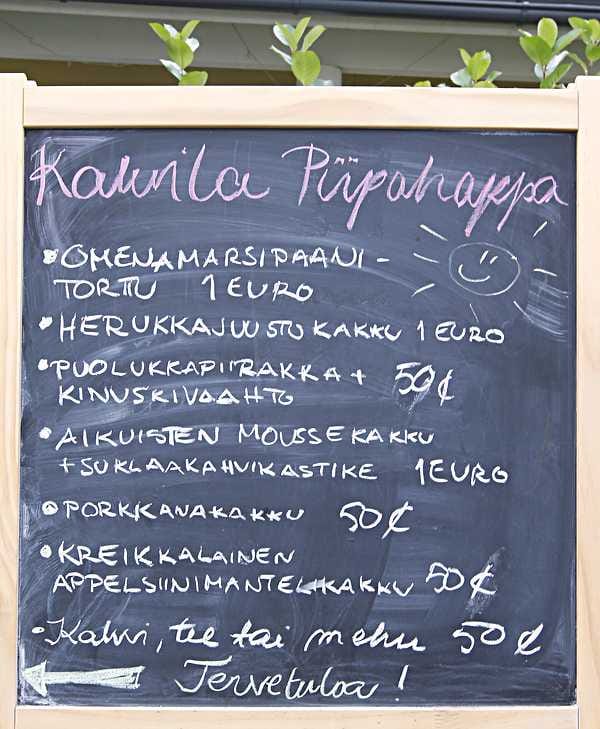 Kahvila Piipahappa
• OMENAMARSIPAANI-
TORTTU 1 EURO
• HERUKKAJUUSTOKAKKU 1 EURO
• PUOLUKKAPIIRAKKA + 50 ¢
KINUSKIVAAHTO
• AIKUISTEN MOUSSEKAKKU
+ SUKLAAKAHVIKASTIKE 1 EURO
• PORKKANAKAKKU 50 ¢
• KREIKKALAINEN
APPELSIINIMANTELIKAKKU 50 ¢
• Kahvi, tee tai mehu 50 ¢
Tervetuloa!